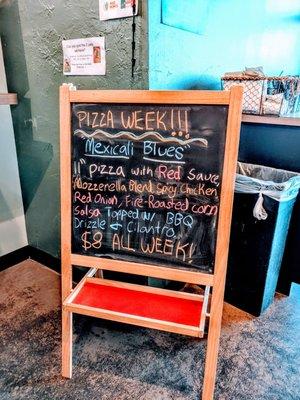 PIZZA WEEK!!!
"Mexicali Blues"
11" pizza with Red Sauce
Mozzerella Blend Spicy Chicken
Red Onion, Fire-Roasted corn
Salsa Topped w/ BBQ
Drizzle & Cilantro
$8 ALL WEEK!